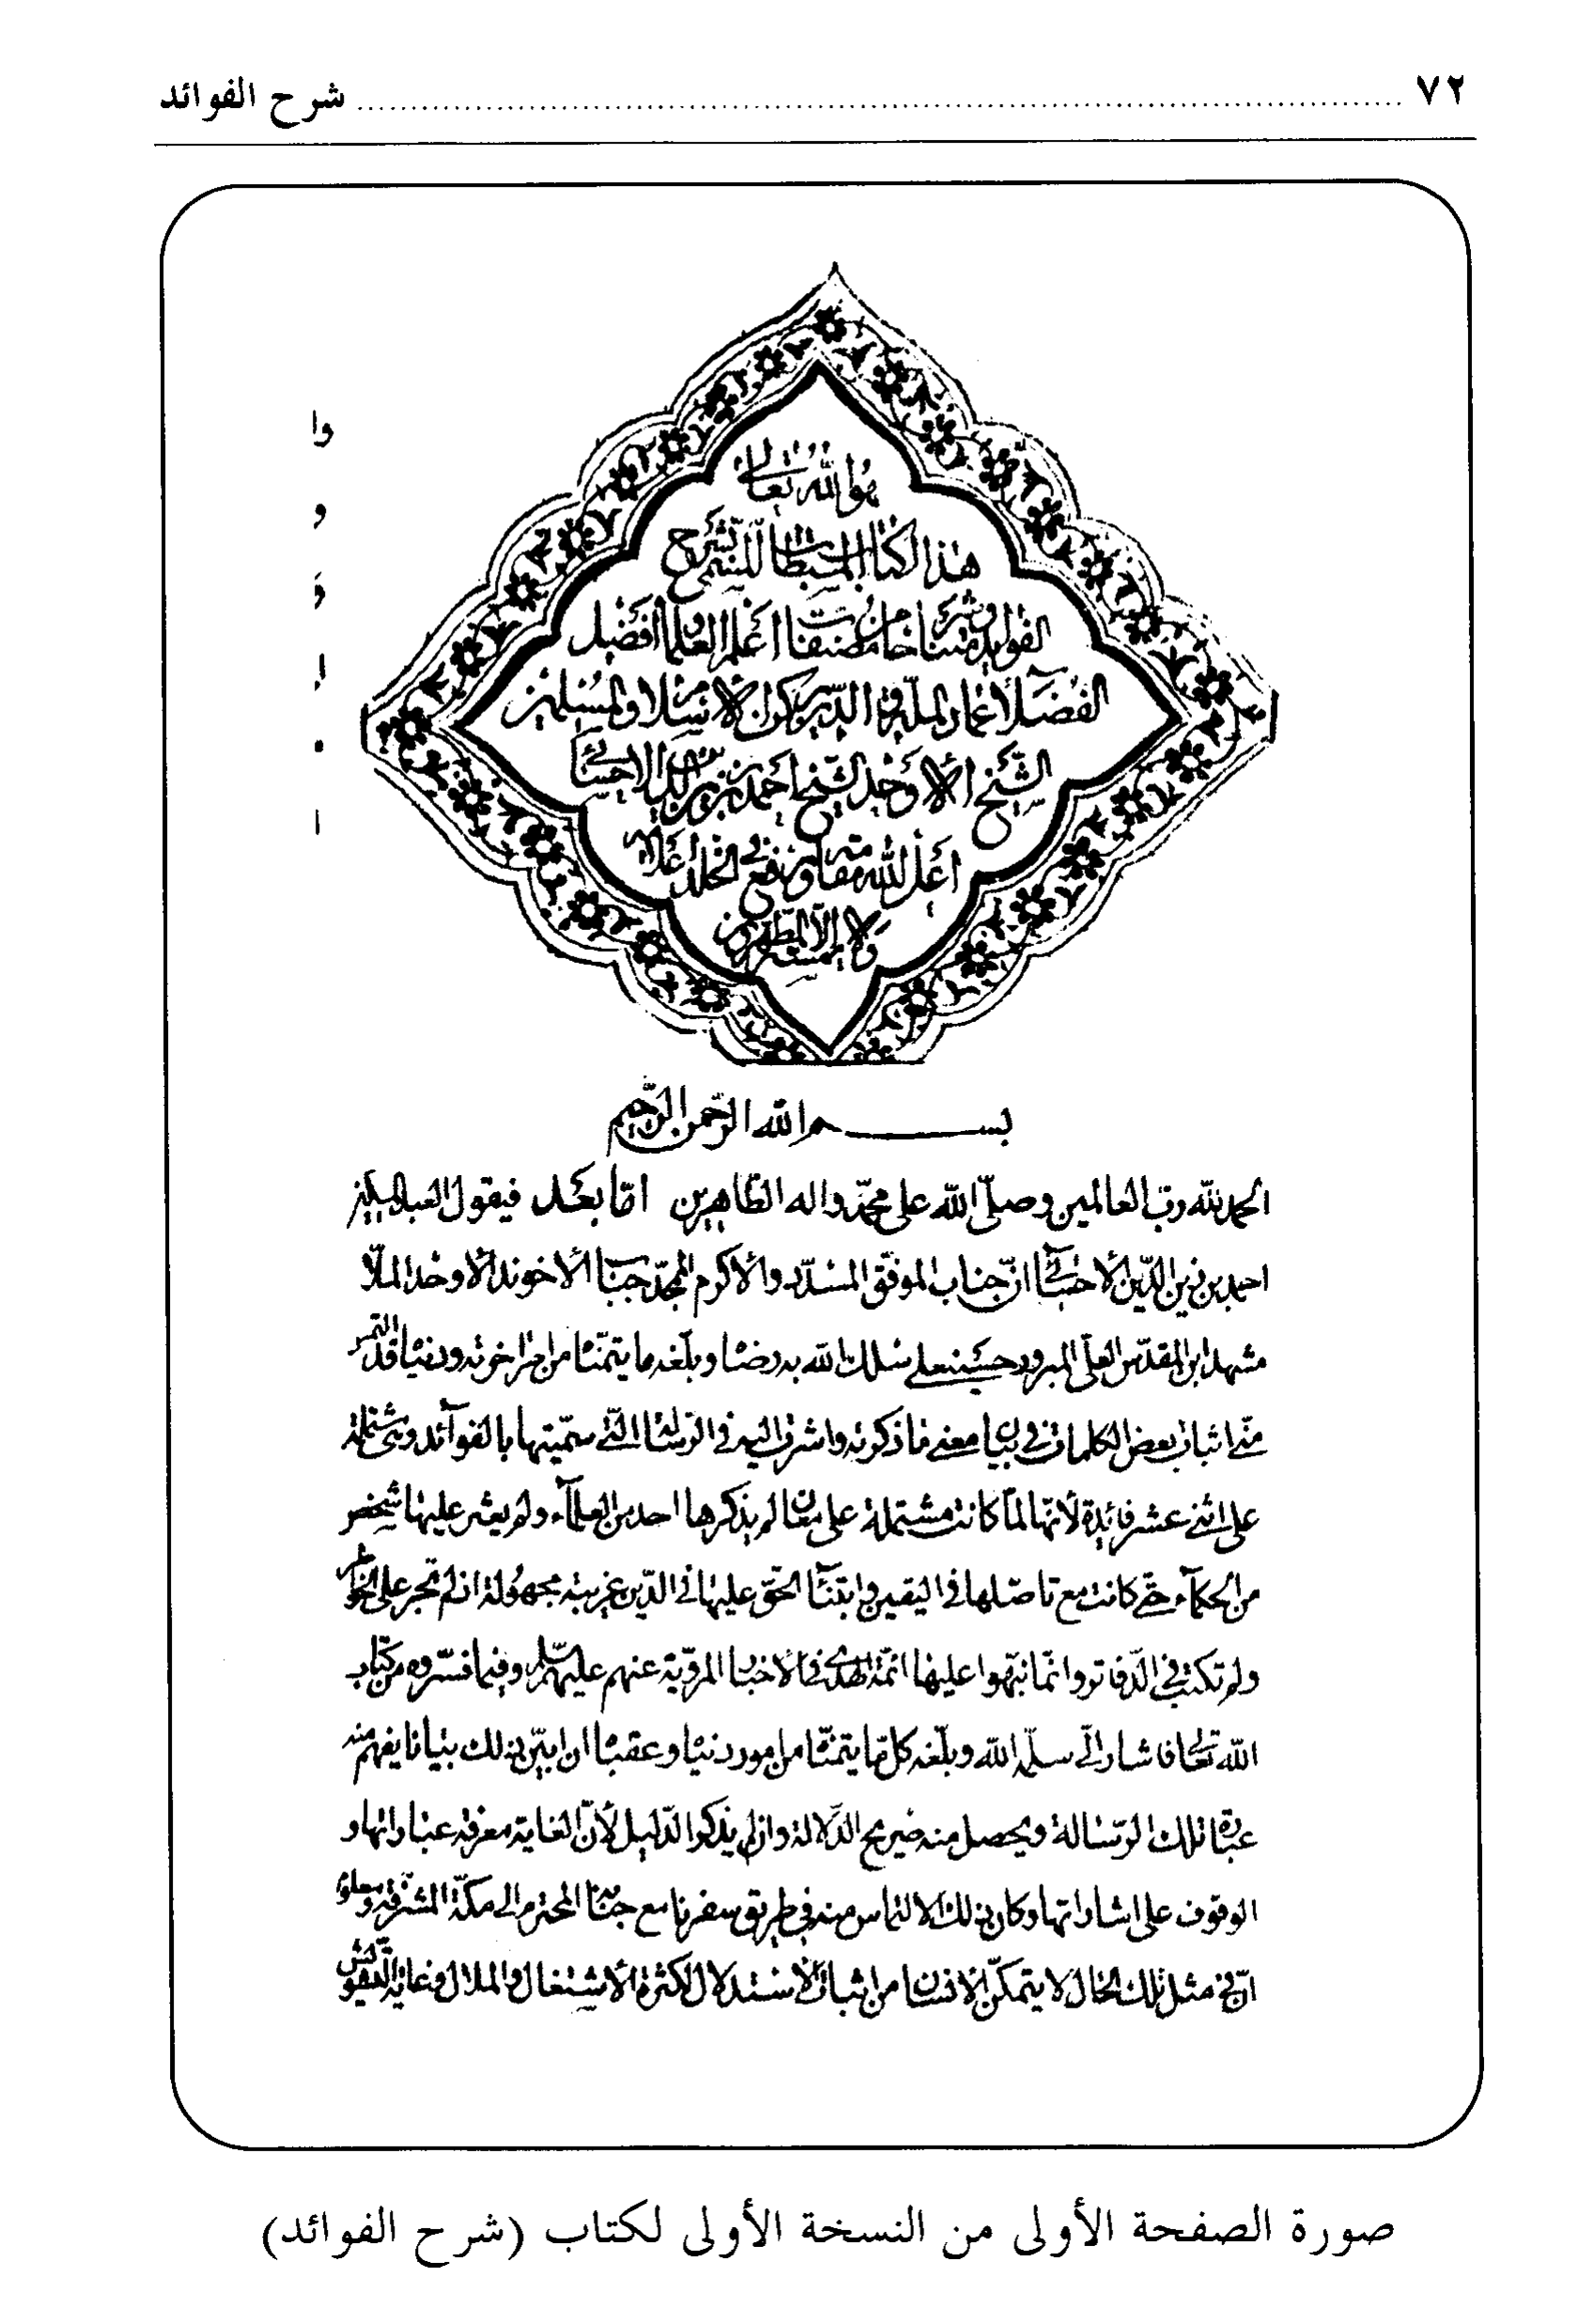 ٧٢ شرح الفوائد
هو الله تعالى
هذا الكتاب المستطاب المسمى بشرح
الفوائد من مصنفات اعلم العلماء افضل
الفضلاء عماد الملة والدين ركن الاسلام والمسلمين
الشيخ الاوحد الشيخ احمد بن زين الدين الاحسائي
اعلى الله مقامه ورفع في الخلد اعلامه
ولا يمسه الا المطهرون
وا
و
بسم الله الرحمن الرحيم
الحمد لله رب العالمين وصلّى الله على محمّد واله الطّاهرين امّا بعد فيقول العبد المسكين
احمد بن زين الدّين الاحسائي انّ جناب الموفّق المسدّد والاكرم الممجّد جناب الاخوند الاوحد الملّا
مشهد ابن المقدّس العلّي المبرور حسينعلي سلك الله به رضاه وبلّغه ما يتمنّاه من اخرته ودنياه قد التمس
منّي اثبات بعض الكلمات في بيان معنى ما ذكرته واشرت اليه في الرّسالة الّتي سمّيتها بالفوآئد وهي مشتملة
على اثني عشر فائدة لانّها لمّا كانت مشتملة على معان لم يذكرها احد من العلمآء ولم يعثر عليها شخص
من الحكمآء حتّى كانت مع تاصّلها في اليقين وابتنآء الحقّ عليها في الدّين غريبة مجهولة اذ لم تجر على الخواطر
ولم تكتب في الدّفاتر وانّما نبّهوا عليها ائمّة الهدى في الاخبار المرويّة عنهم عليهم السّلم وفيما فسّروه من كتاب
الله تعالى فاشار الّي سلّمه الله وبلّغه كلّ ما يتمنّاه من امور دنياه وعقباه ان ابيّن ذلك بيانا يفهم منه
عبارة تلك الرّسالة ويحصل منه صريح الدّلالة وان لم يذكر الدّليل لانّ الغاية معرفة عباراتها و
الوقوف على اشاراتها وكان ذلك الالتماس منه في طريق سفرنا مع جنابه المحترم الى مكّة المشرّفة ومعلوم
انّ في مثل تلك الحال لا يتمكّن الانسان من اثبات الاستدلال لكثرة الاشتغال والملال وغاية التشويش
صورة الصفحة الأولى من النسخة الأولى لكتاب (شرح الفوائد)